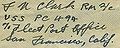 F. N. Clark RM 3/c
USS PC 1494
℅ Fleet Post Office
San Francisco, Calif.